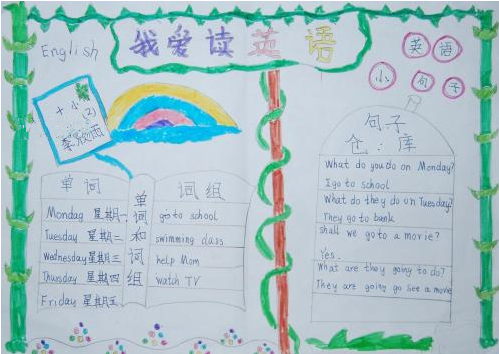 English
我爱读英语
英语
小句子
十小
(2)
单词
Mondag 星期一
Tuesday 星期二
Wednesday 星期三
Thursday 星期四
Friday 星期五
单词和词组
词组
go to school
swimming class
help Mom
watch TV
句子
仓:库
What do you do on Monday?
I go to school
What do they do on Tuesday?
They go to bank
shall we go to a movie?
Yes.
What are they going to do?
They are going go see a movie